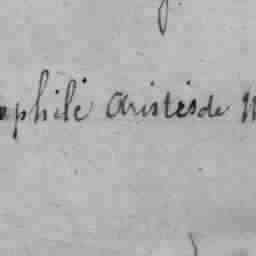 ophile Aristide